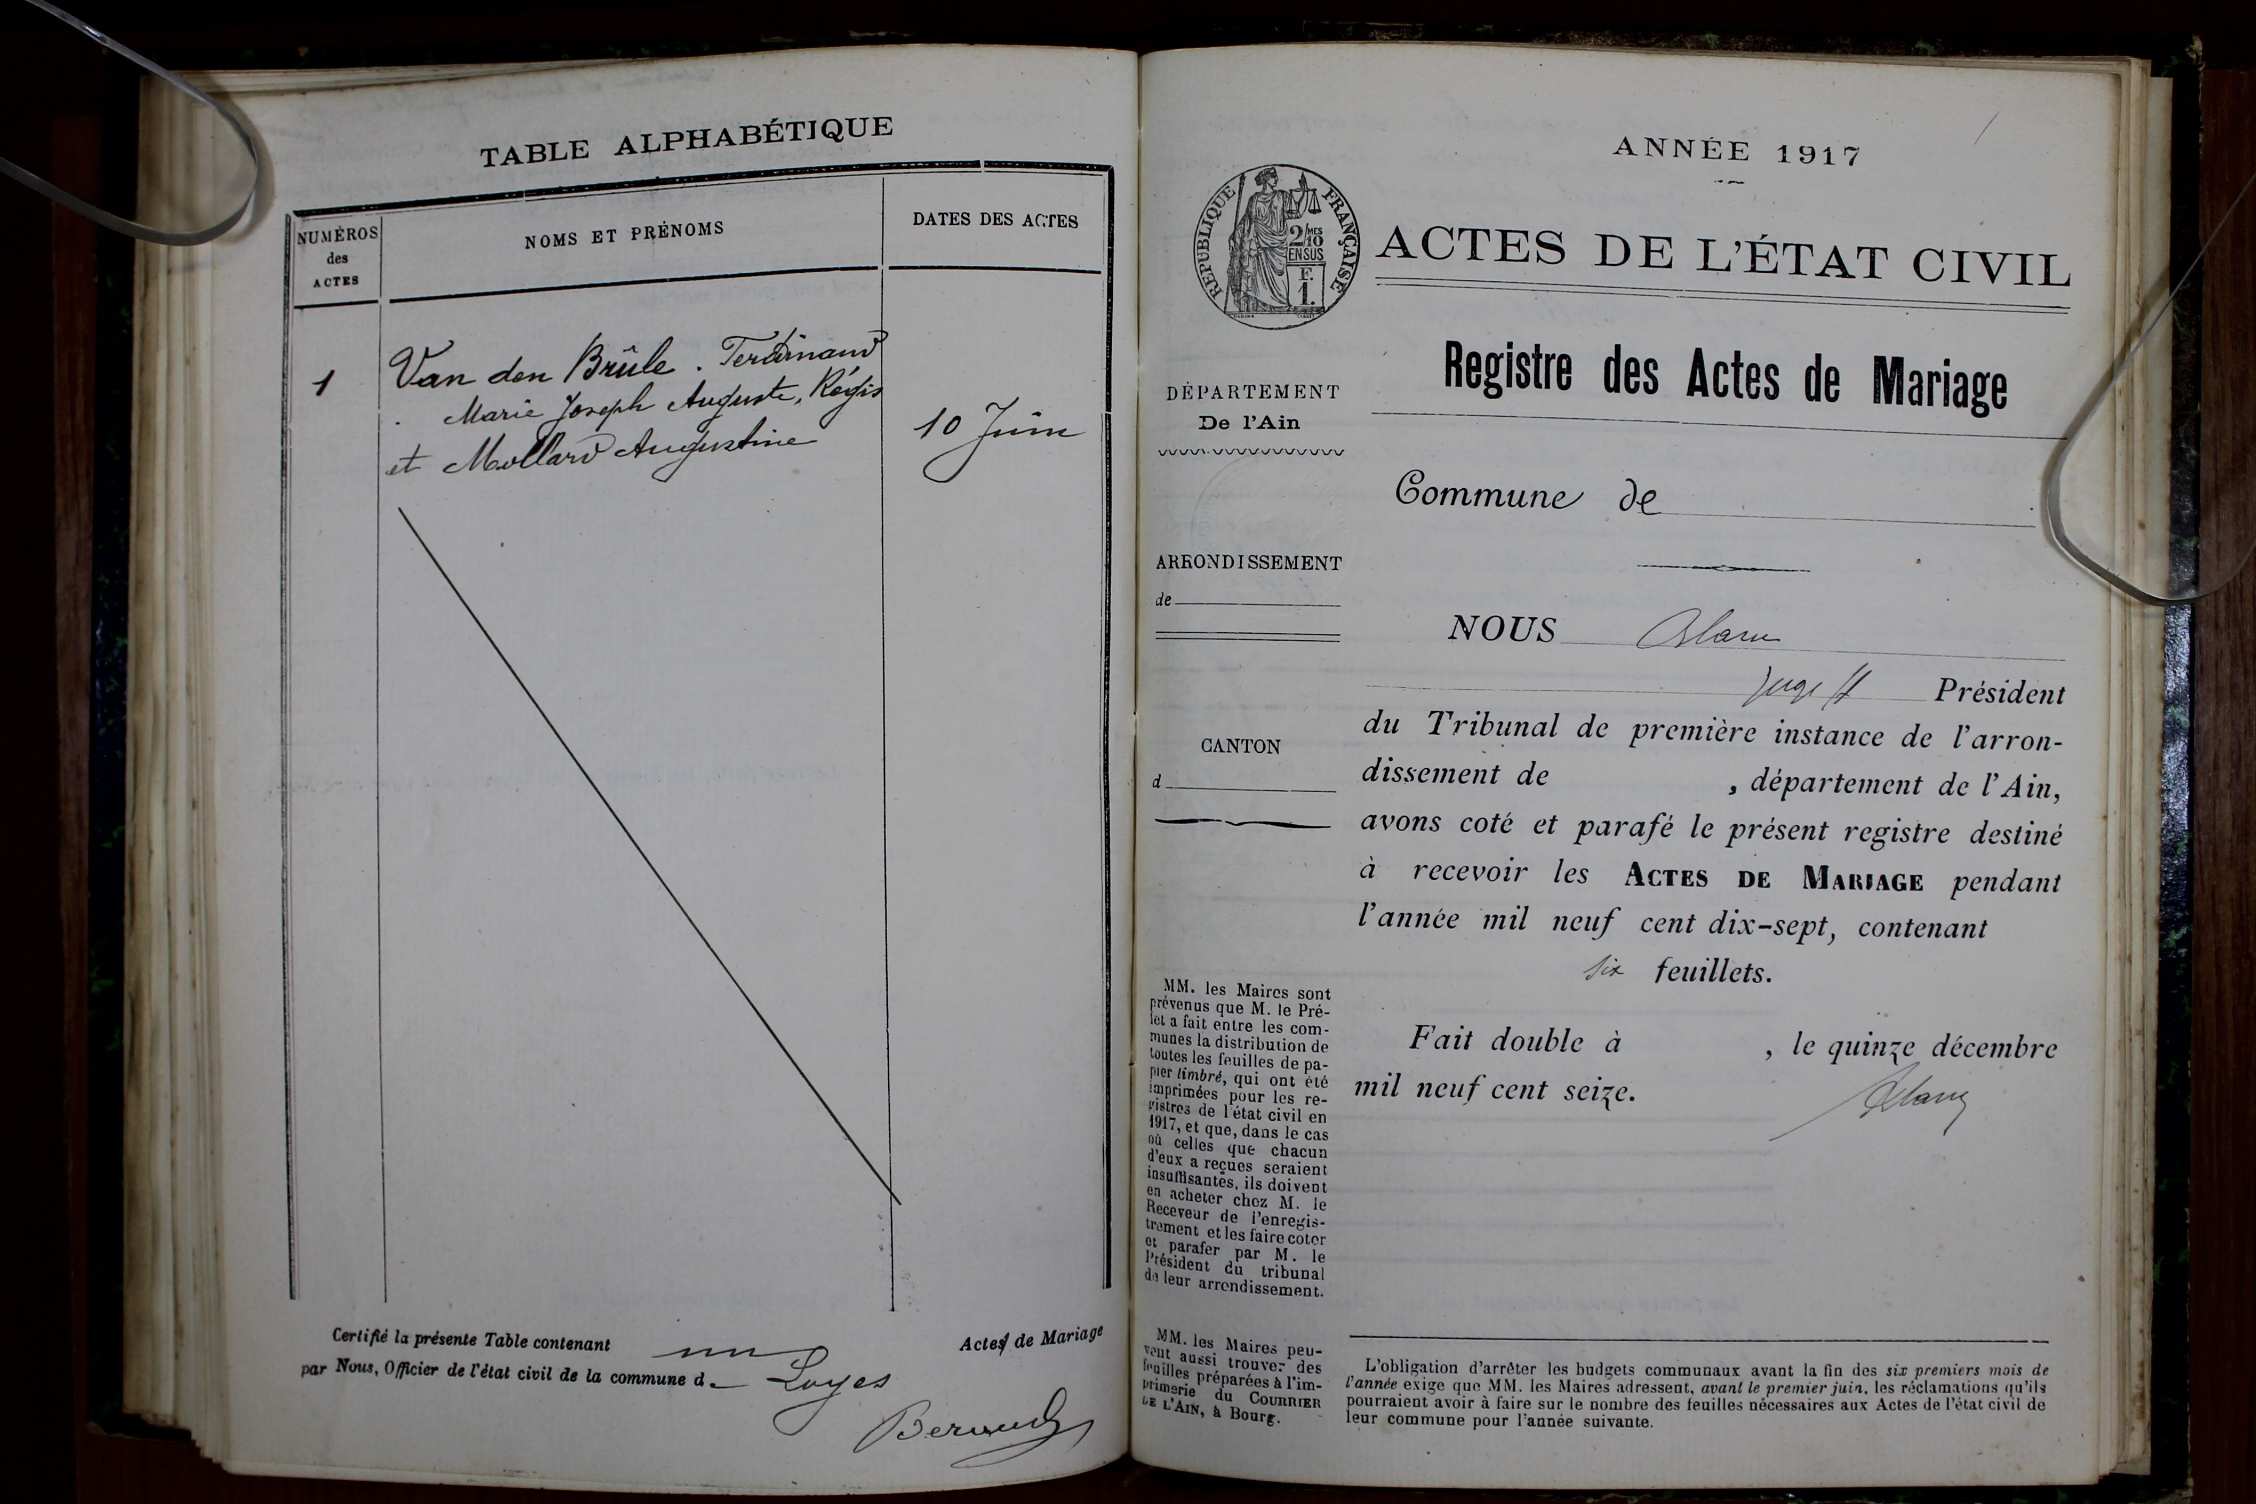 TABLE ALPHABÉTIQUE
NUMÉROS
des
ACTES
NOMS ET PRÉNOMS
DATES DES ACTES
1
Van den Brûle. Ferdinand
Marie Joseph Auguste, Régis
et Mollard Augustine
10 Juin
Certifié la présente Table contenant un Actes de Mariage
par Nous, Officier de l'état civil de la commune d Loyes
ANNÉE 1917
RÉPUBLIQUE FRANÇAISE
2/10 MES
EN SUS
F.
1.
ACTES DE L'ÉTAT CIVIL
Registre des Actes de Mariage
DÉPARTEMENT
De l'Ain
Commune de
ARRONDISSEMENT
de
CANTON
d
NOUS
Juge Président
du Tribunal de première instance de l'arron-
dissement de , département de l'Ain,
avons coté et parafé le présent registre destiné
à recevoir les ACTES DE MARIAGE pendant
l'année mil neuf cent dix-sept, contenant
six feuillets.
Fait double à , le quinze décembre
mil neuf cent seize.
MM. les Maires sont
prévenus que M. le Pré-
fet a fait entre les com-
munes la distribution de
toutes les feuilles de pa-
pier timbré, qui ont été
imprimées pour les re-
gistres de l'état civil en
1917, et que, dans le cas
où celles que chacun
d'eux a reçues seraient
insuffisantes, ils doivent
en acheter chez M. le
Receveur de l'enregis-
trement et les faire coter
et parafer par M. le
Président du tribunal
de leur arrondissement.
MM. les Maires peu-
vent aussi trouver des
feuilles préparées à l'im-
primerie du COURRIER
DE L'AIN, à Bourg.
L'obligation d'arrêter les budgets communaux avant la fin des six premiers mois de
l'année exige que MM. les Maires adressent, avant le premier juin, les réclamations qu'ils
pourraient avoir à faire sur le nombre des feuilles nécessaires aux Actes de l'état civil de
leur commune pour l'année suivante.